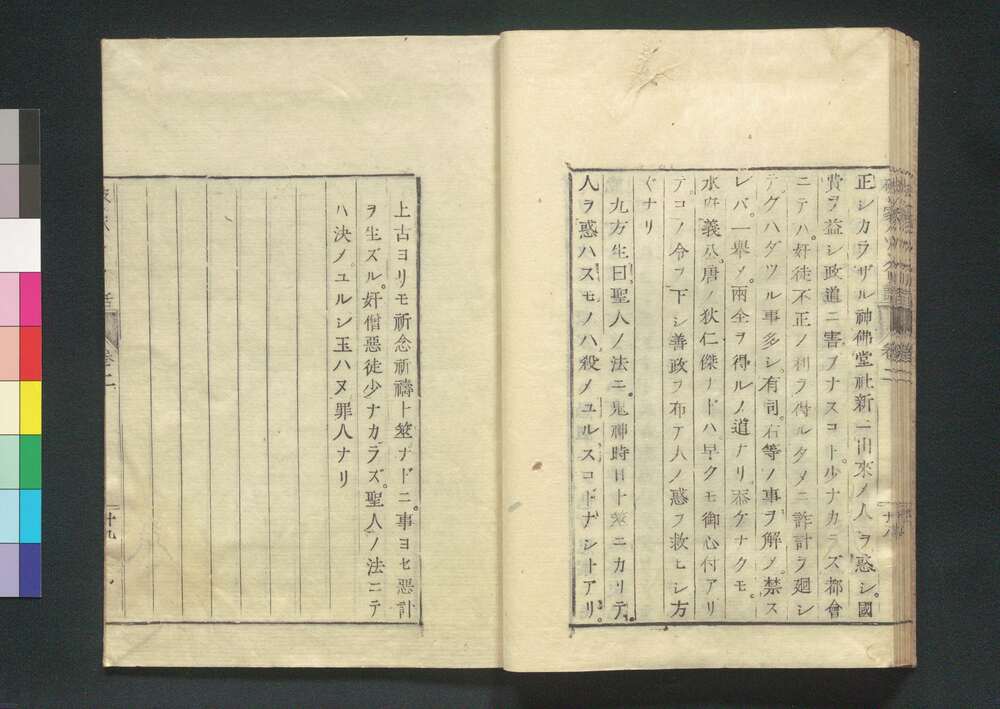 正シカラザル神佛堂社新ニ出來ノ人ヲ惑シ。國
費ヲ益シ政道ニ害ヲナスコト少ナカラズ都會
ニテハ。奸徒不正ノ利ヲ得ルタメニ詐計ヲ廻シ
テグハダツル事多シ。有司。右等ノ事ヲ解〆。禁ス
レバ。一擧〆。兩全ヲ得ルノ道ナリ忝ケナクモ。
水府義公。唐ノ狄仁傑ナドハ早クモ御心付アリ
テコノ令ヲ下シ善政ヲ布テ人ノ惑ヲ救ヒシ方
ゞナリ
九方生曰。聖人ノ法ニ。鬼神時日卜筮ニカリテ。
人ヲ惑ハスモノハ。殺〆ユルスコトナシトアリ。
上古ヨリモ祈念祈禱卜筮ナドニ。事ヨセ惡計
ヲ生ズル。奸僧惡徒少ナカラズ。聖人ノ法ニテ
ハ決〆ユルシ玉ハヌ罪人ナリ
卷二
十八
卷二
十九